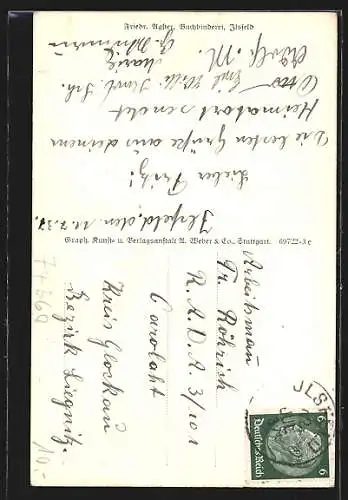 Friedr. Agster, Buchbinderei, Ilsfeld
Ilsfeld, den 11.7.37.
Lieber Fritz!
Die besten Grüße aus deinem
Heimatort sendet
Otto Emil Willi
Adolf. M. Marie
Graph. Kunst- u. Verlagsanstalt A. Weber & Co., Stuttgart. 69722-3c
Arbeitsmann
Fr. Röhrich
R.A.D.A. 3/101
Carolaht
Kreis Glockau
Bezirk Liegnitz.
ILSF
6 6
Deutsches Reich
10.-